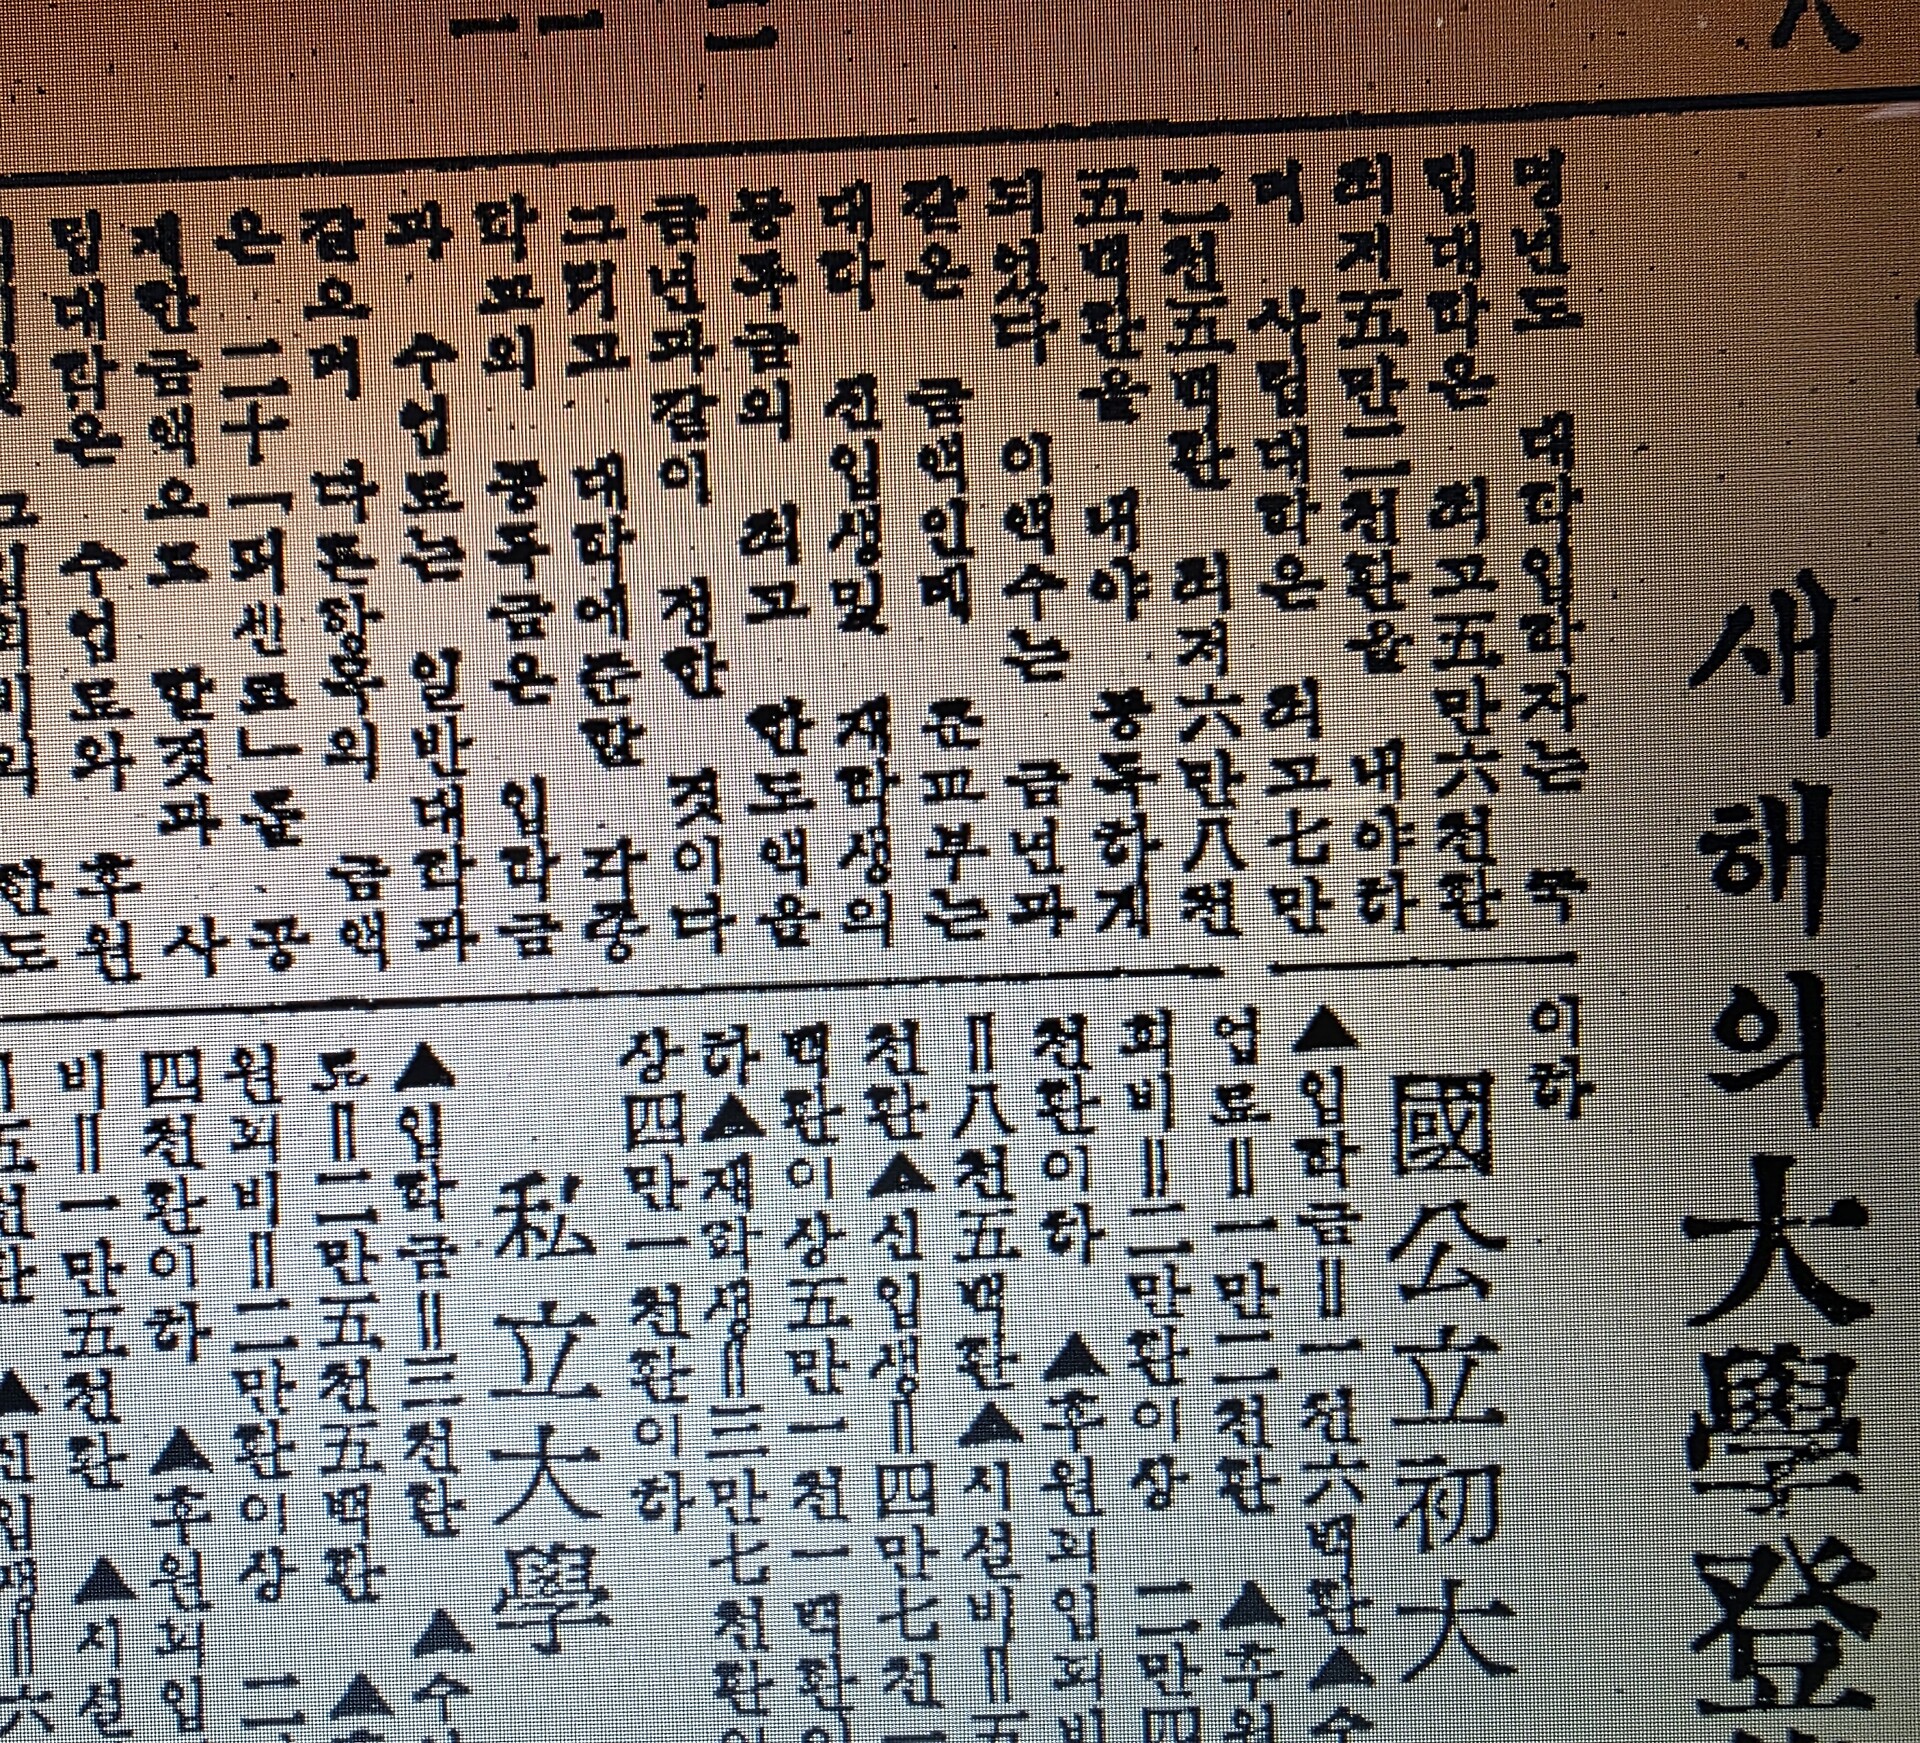 새해의大學登
명년도 대학입학자는 국
립대학은 최고五만六천환
최저五만二천환을 내야하
며 사립대학은 최고七만
二천五백환 최저六만八천
五백환을 내야 등록하게
되었다 이액수는 금년과
같은 금액인데 문교부는
대학 신입생및 재학생의
공부금의 최고 한도액을
금년과같이 정한 것이다
그리고 대학에준할
학교의 공부금은 입학금
과 수업료는 일반대학과
같으며 다른항목의 금액
은 二十「퍼센트」를 공
제한금액으로 할것과 사
립대학은 수업료와 후원
이하
國公立初大
▲입학금=一천六백환▲수
업료=一만二천환 ▲후원
회비=二만환이상 二만四
천환이하 ▲후원회입회비
=八천五백환▲시설비=五
천환▲신입생=四만七천一
백환이상五만一천一백환이
하▲재학생=三만七천환이
상四만一천환이하
私立大學
▲입학금=三천환 ▲수
료=二만五천五백환 ▲
원회비=二만환이상 二
四천환이하 ▲후원회입
비=一만五천환 ▲시설